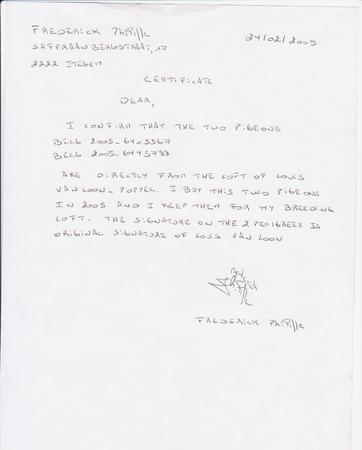 FREDERICK PhiPille
SAFFRAAN BERGSTRAAT, 17
2222 ITEGEM
24/02/2009
CERTIFICATE
DEAR,
I CONFIRM THAT THE TWO PIGEONS
BELG 2005-6405567
BELG 2005-6445788
ARE DIRECTLY FROM THE LOFT OF LOUIS
VAN LOON-POPPEL. I BUY THIS TWO PIGEONS
IN 2005 AND I KEEP THEM FOR MY BREEDING
LOFT. THE SIGNATURE ON THE 2 PEDIGREES IS
ORIGINAL SIGNATURE OF LOUIS VAN LOON
FREDERICK PhiPille